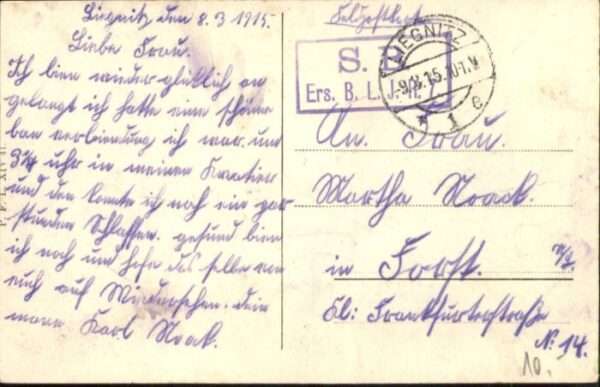 Liegnitz den 8.3 1915.
Liebe Frau.
Ich bien wieder glücklich an
gelangt ich hatte eine schöne
ban verbiendung ich war und
3¼ uhr in meinen Kwatier
und den konnte ich noch ein par
stunden Schlaffen. gesund bien
ich noch und hofe das selbe von
euch auf Wiedersehen. dein
mann Karl Noack.
Feldpostkarte
S. B.
Ers. B. L. J.
LIEGNITZ
1 e
An. Frau.
Martha Noack.
in Forst. N/L.
Kl: Frankfurterstraße
No: 14.
10.